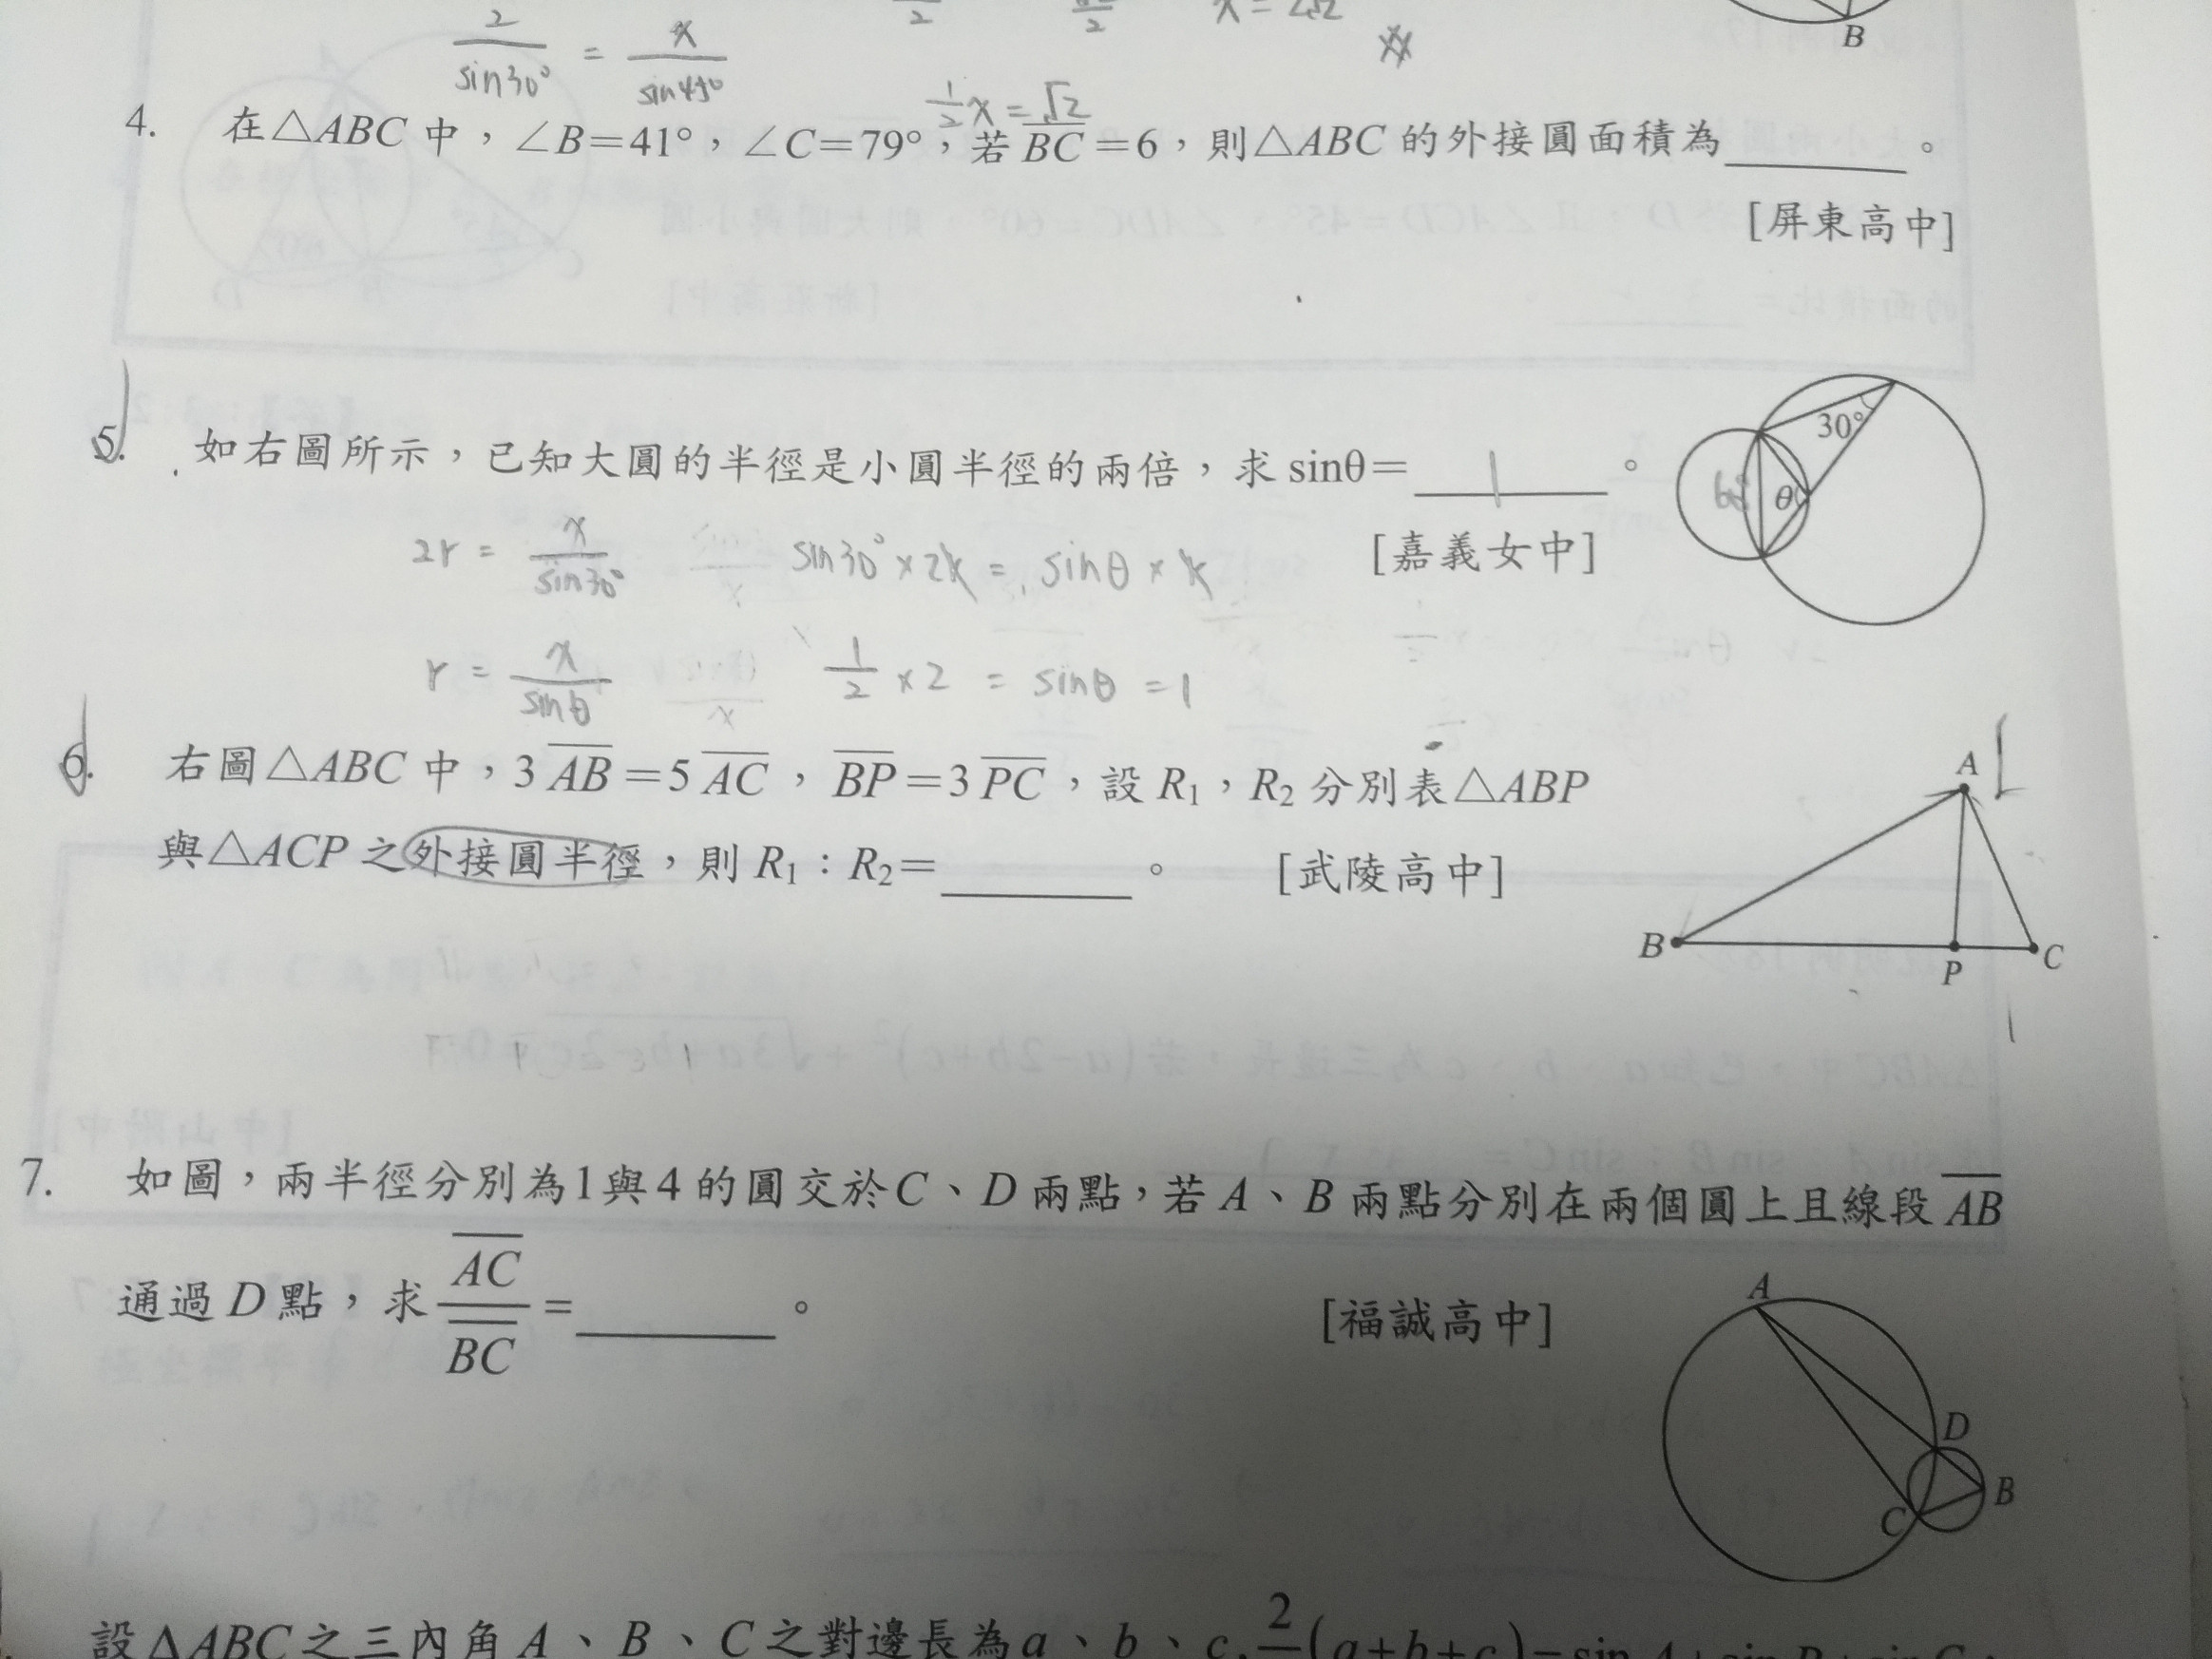 2/sin30° = x/sin45°
x = 2√2
B
1/2 x = √2
4. 在△ABC 中，∠B=41°，∠C=79°，若 BC =6，則△ABC 的外接圓面積為______。
[屏東高中]
5. 如右圖所示，已知大圓的半徑是小圓半徑的兩倍，求 sinθ= 1 。
[嘉義女中]
30°
θ
2r = x/sin30° sin30° × 2k = sinθ × k
r = x/sinθ 1/2 × 2 = sinθ = 1
6. 右圖△ABC 中，3 AB =5 AC ，BP =3 PC ，設 R₁，R₂ 分別表△ABP
與△ACP 之外接圓半徑，則 R₁：R₂=______。 [武陵高中]
A
B
P
C
7. 如圖，兩半徑分別為1與4的圓交於C、D兩點，若 A、B 兩點分別在兩個圓上且線段 AB
通過 D 點，求 AC/BC =______。 [福誠高中]
A
D
B
C
設 ΔABC 之三內角 A、B、C 之對邊長為 a、b、c, 2